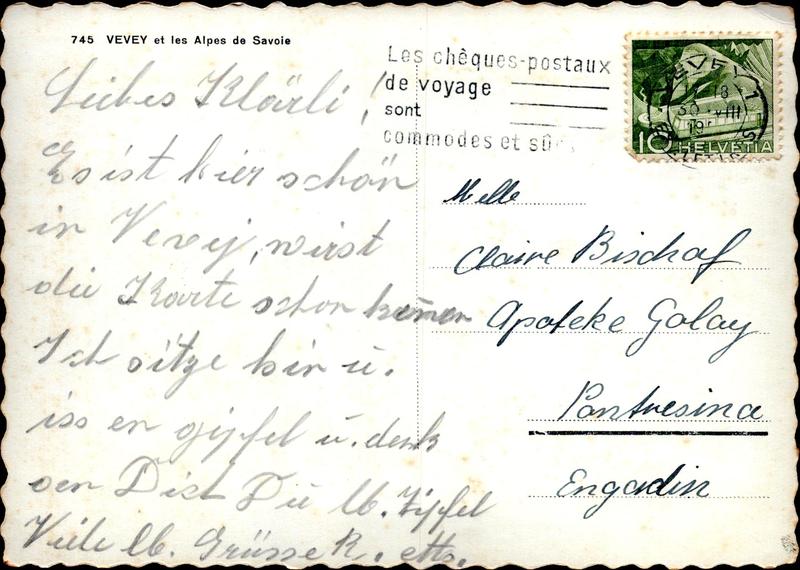 745 VEVEY et les Alpes de Savoie
Les chèques-postaux
de voyage
sont
commodes et sûrs
VEVEY 1
18
30 VIII
10 HELVETIA
Liebes Klärli!
Es ist hier schön
in Vevey, wirst
die Karte schon kennen
Ich sitze hir u.
iss en gipfel u. denk
Du lb. Zipfel
Viele lb. Grüsse R.
Melle
Claire Bischof
Apoteke Golay
Pontresina
Engadin